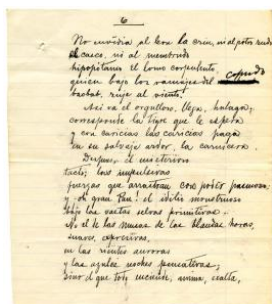 6
No envidia al león la crin, ni al potro rudo
el casco, ni al membrudo
hipopótamo el lomo corpulento,
quien bajo los ramajes del copudo
baobab, ruje al viento.
Así va el orgulloso, llega, halaga;
corresponde la tigre que le espera
y con caricias las caricias paga
en su salvaje ardor, la carnicera.
Después, el misterioso
tacto, las impulsivas
fuerzas que arrastran con poder pasmoso;
y ¡oh gran Pan! el idilio monstruoso
bajo las vastas selvas primitivas.
No el de las musas de las blandas horas,
suaves, expresivas,
en las rientes auroras
y las azules noches pensativas;
sino el que todo enciende, anima, exalta,